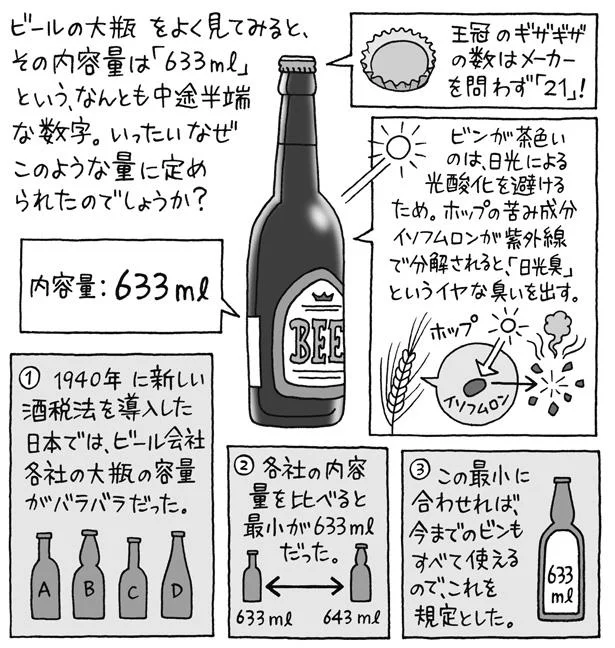 ビールの大瓶 をよく見てみると、
その内容量は「633ml」
という、なんとも中途半端
な数字。いったいなぜ
このような量に定め
られたのでしょうか？
王冠 のギザギザ
の数はメーカー
を問わず「21」!
ビンが茶色い
のは、日光による
光酸化を避ける
ため。ホップの苦み成分
イソフムロンが紫外線
で分解されると、「日光臭」
というイヤな臭いを出す。
ホップ
イソフムロン
内容量：633ml
BEE
① 1940年 に新しい
酒税法を導入した
日本では、ビール会社
各社の大瓶の容量
がバラバラだった。
A B C D
② 各社の内容
量を比べると
最小が633ml
だった。
633ml 643ml
③ この最小に
合わせれば、
今までのビンも
すべて使える
ので、これを
規定とした。
633
ml